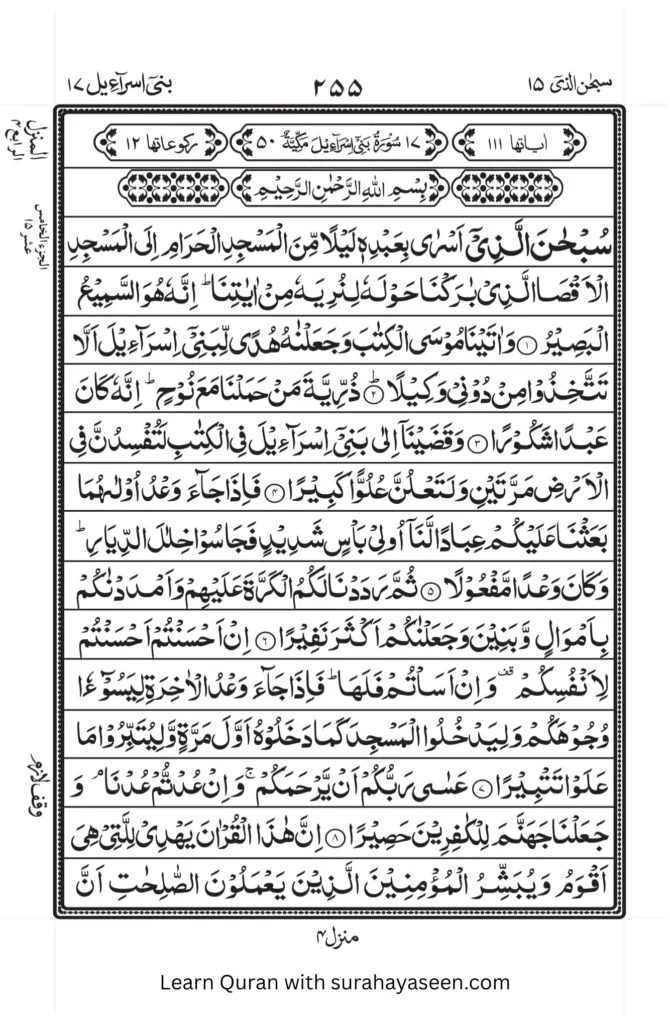 سبحٰن الذیٓ ۱۵
۲۵۵
بنیٓ اسرآءیل ۱۷
المنزل الرابع ۴
اٰیاتها ۱۱۱
۱۷ سُوْرَةُ بَنِیْٓ اِسْرَآءِیْلَ مَكِّیَّةٌ ۵۰
ركوعاتها ۱۲
بِسْمِ اللّٰهِ الرَّحْمٰنِ الرَّحِیْمِ
الجزء الخامس عشر ۱۵
سُبْحٰنَ الَّذِیْۤ اَسْرٰی بِعَبْدِهٖ لَیْلًا مِّنَ الْمَسْجِدِ الْحَرَامِ اِلَی الْمَسْجِدِ
الْاَقْصَا الَّذِیْ بٰرَكْنَا حَوْلَهٗ لِنُرِیَهٗ مِنْ اٰیٰتِنَا ؕ اِنَّهٗ هُوَ السَّمِیْعُ
الْبَصِیْرُ ۝۱ وَ اٰتَیْنَا مُوْسَی الْكِتٰبَ وَ جَعَلْنٰهُ هُدًی لِّبَنِیْۤ اِسْرَآءِیْلَ اَلَّا
تَتَّخِذُوْا مِنْ دُوْنِیْ وَكِیْلًا ۝۲ؕ ذُرِّیَّةَ مَنْ حَمَلْنَا مَعَ نُوْحٍ ؕ اِنَّهٗ كَانَ
عَبْدًا شَكُوْرًا ۝۳ وَ قَضَیْنَاۤ اِلٰی بَنِیْۤ اِسْرَآءِیْلَ فِی الْكِتٰبِ لَتُفْسِدُنَّ فِی
الْاَرْضِ مَرَّتَیْنِ وَ لَتَعْلُنَّ عُلُوًّا كَبِیْرًا ۝۴ فَاِذَا جَآءَ وَعْدُ اُوْلٰىهُمَا
بَعَثْنَا عَلَیْكُمْ عِبَادًا لَّنَاۤ اُولِیْ بَاْسٍ شَدِیْدٍ فَجَاسُوْا خِلٰلَ الدِّیَارِ ؕ
وَ كَانَ وَعْدًا مَّفْعُوْلًا ۝۵ ثُمَّ رَدَدْنَا لَكُمُ الْكَرَّةَ عَلَیْهِمْ وَ اَمْدَدْنٰكُمْ
بِاَمْوَالٍ وَّ بَنِیْنَ وَ جَعَلْنٰكُمْ اَكْثَرَ نَفِیْرًا ۝۶ اِنْ اَحْسَنْتُمْ اَحْسَنْتُمْ
لِاَنْفُسِكُمْ ۫ وَ اِنْ اَسَاْتُمْ فَلَهَا ؕ فَاِذَا جَآءَ وَعْدُ الْاٰخِرَةِ لِیَسُوْٓءٗا
وُجُوْهَكُمْ وَ لِیَدْخُلُوا الْمَسْجِدَ كَمَا دَخَلُوْهُ اَوَّلَ مَرَّةٍ وَّ لِیُتَبِّرُوْا مَا
عَلَوْا تَتْبِیْرًا ۝۷ عَسٰی رَبُّكُمْ اَنْ یَّرْحَمَكُمْ ۚ وَ اِنْ عُدْتُّمْ عُدْنَا ۘ وَ
وقف لازم
جَعَلْنَا جَهَنَّمَ لِلْكٰفِرِیْنَ حَصِیْرًا ۝۸ اِنَّ هٰذَا الْقُرْاٰنَ یَهْدِیْ لِلَّتِیْ هِیَ
اَقْوَمُ وَ یُبَشِّرُ الْمُؤْمِنِیْنَ الَّذِیْنَ یَعْمَلُوْنَ الصّٰلِحٰتِ اَنَّ
منزل ۴
Learn Quran with surahayaseen.com